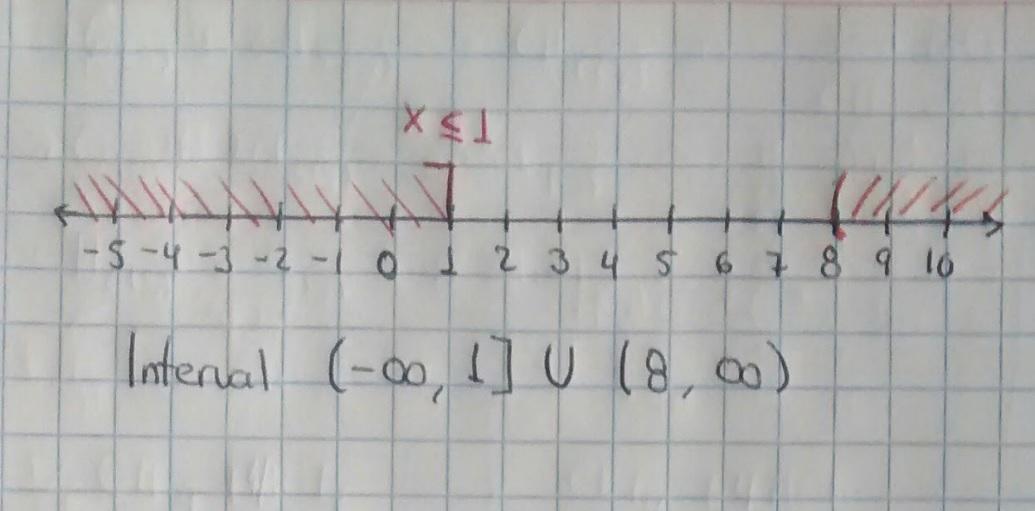 x ≤ 1
-5 -4 -3 -2 -1 0 1 2 3 4 5 6 7 8 9 10
Interval (-∞, 1] ∪ (8, ∞)